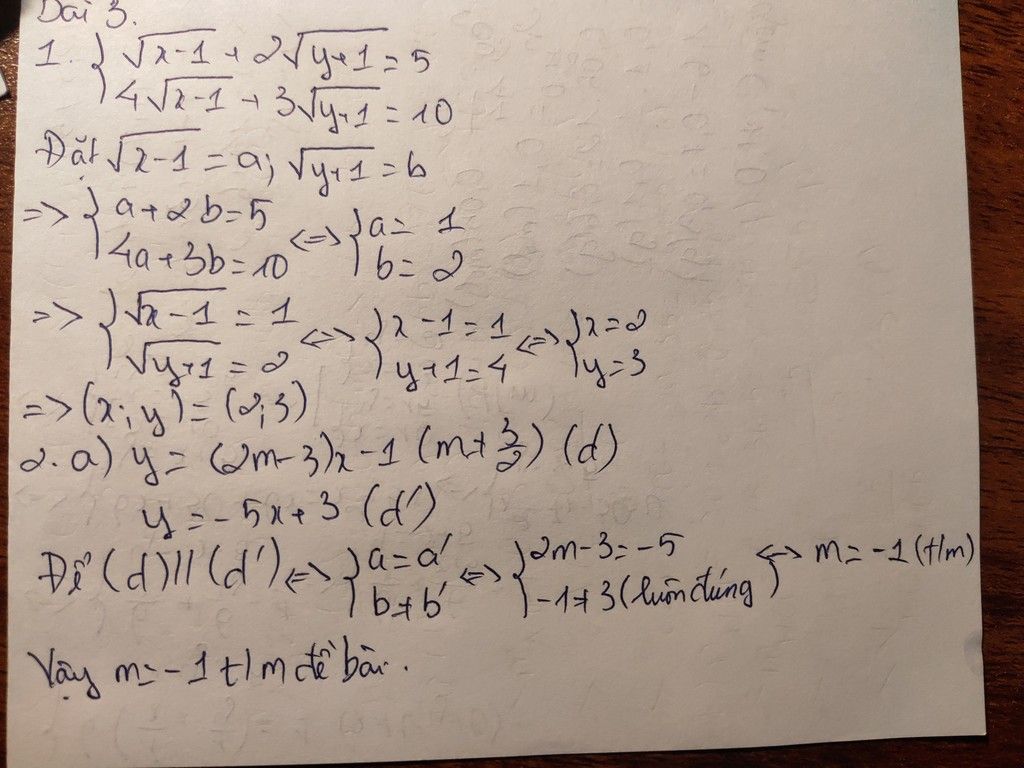 Bài 3.
1. { √x-1 + 2√y+1 = 5
4√x-1 + 3√y+1 = 10
Đặt √x-1 = a; √y+1 = b
=> { a+2b=5
4a+3b=10 <=> { a= 1
b=2
=> { √x-1 = 1
√y+1 = 2 <=> { x-1=1
y+1=4 <=> { x=2
y=3
=> (x;y) = (2;3)
2. a) y = (2m-3)x-1 (m≠3/2) (d)
y = -5x+3 (d')
Để (d)//(d') <=> { a=a'
b≠b' <=> { 2m-3=-5
-1≠3 (luôn đúng) <=> m=-1 (t/m)
Vậy m=-1 t/m đề bài.